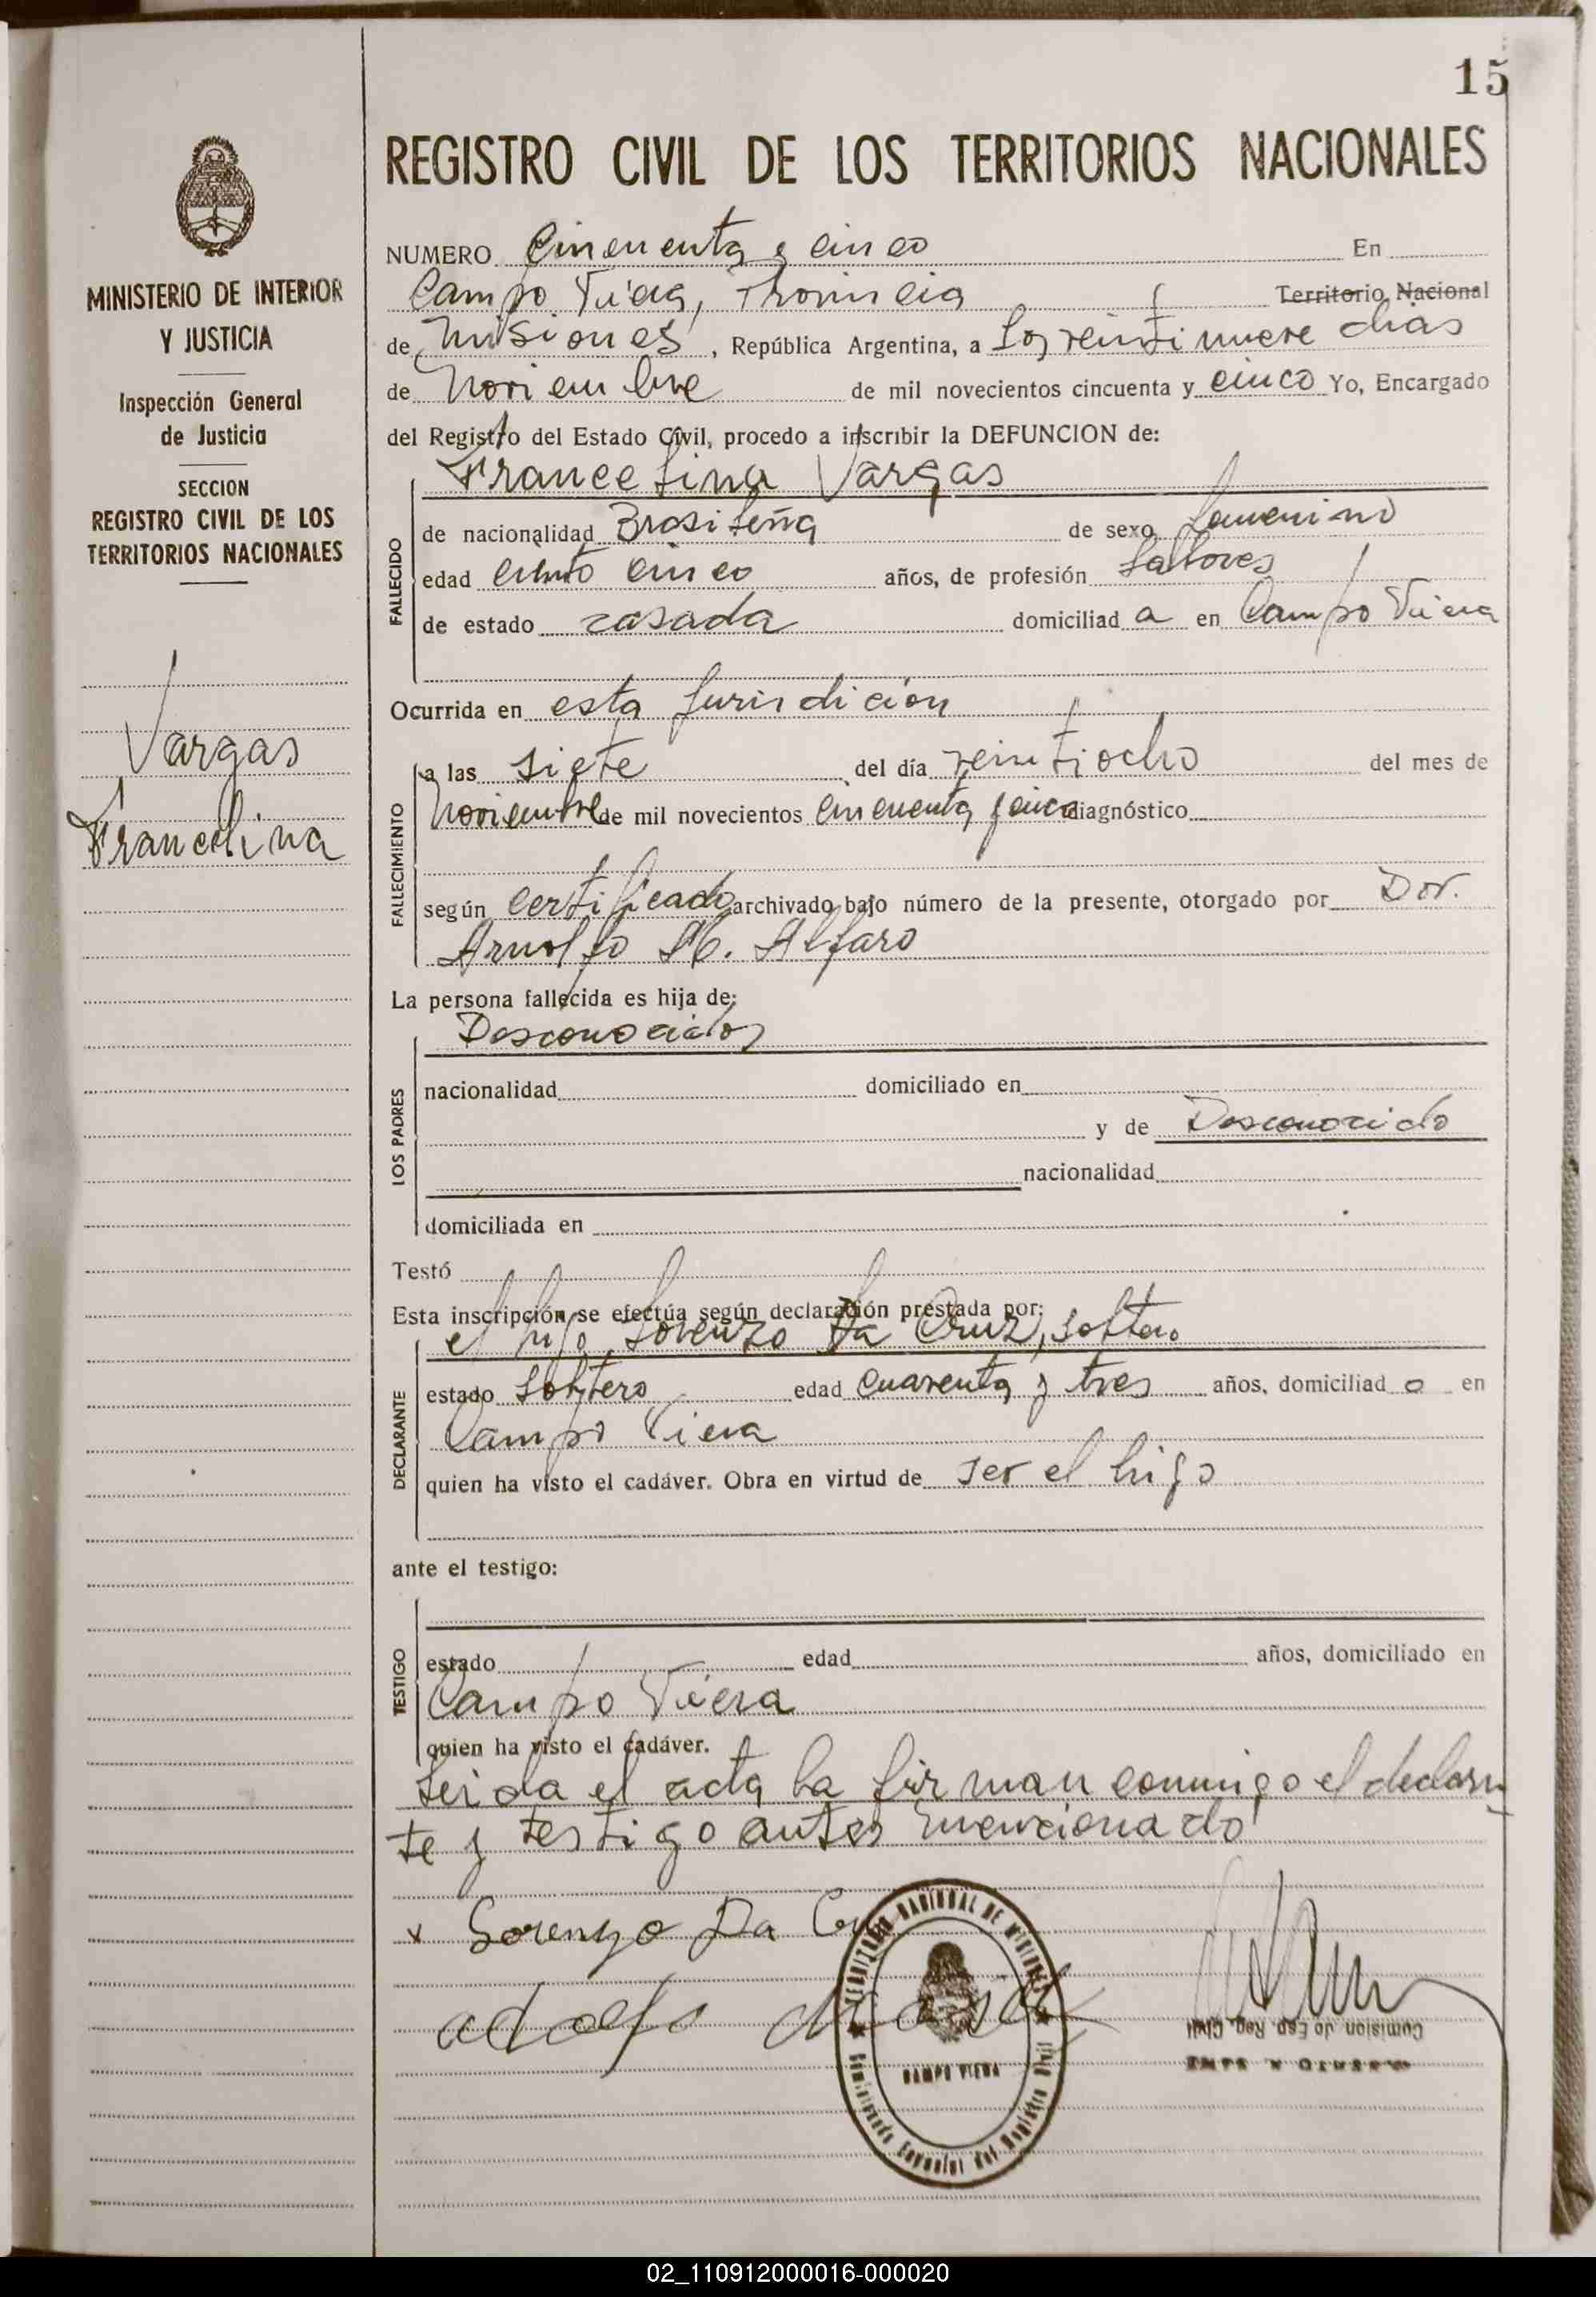 15
REGISTRO CIVIL DE LOS TERRITORIOS NACIONALES
MINISTERIO DE INTERIOR
Y JUSTICIA
Inspección General
de Justicia
SECCION
REGISTRO CIVIL DE LOS
TERRITORIOS NACIONALES
Vargas
Francelina
NUMERO Cincuenta y cinco En
Campo Viera, Provincia Territorio Nacional
de Misiones, República Argentina, a los veintinueve dias
de Noviembre de mil novecientos cincuenta y cinco Yo, Encargado
del Registro del Estado Civil, procedo a inscribir la DEFUNCION de:
Francelina Vargas
FALLECIDO
de nacionalidad Brasileña de sexo femenino
edad ciento cinco años, de profesión Labores
de estado casada domiciliad a en Campo Viera
Ocurrida en esta Jurisdicion
FALLECIMIENTO
a las siete del día veintiocho del mes de
Noviembre de mil novecientos cincuenta y cinco diagnóstico
según certificado archivado bajo número de la presente, otorgado por Dor.
Arnolfo Alfaro
La persona fallecida es hija de:
Desconocidos
LOS PADRES
nacionalidad domiciliado en
y de Desconocido
nacionalidad
domiciliada en
Testó
Esta inscripción se efectúa según declaración prestada por:
el hijo Lorenzo Da Cruz, soltero
DECLARANTE
estado Soltero edad cuarenta y tres años, domiciliad o en
Campo Viera
quien ha visto el cadáver. Obra en virtud de ser el hijo
ante el testigo:
TESTIGO
estado edad años, domiciliado en
Campo Viera
quien ha visto el cadáver.
Leida el acta la firman conmigo el declaran
te y testigo antes mencionado
x Lorenzo Da Cru
adolfo
TERRITORIO NACIONAL DE MISIONES
CAMPO VIERA
Comisionado Especial del Registro Civil
Comision do Esp Reg. Civil
02_110912000016-000020